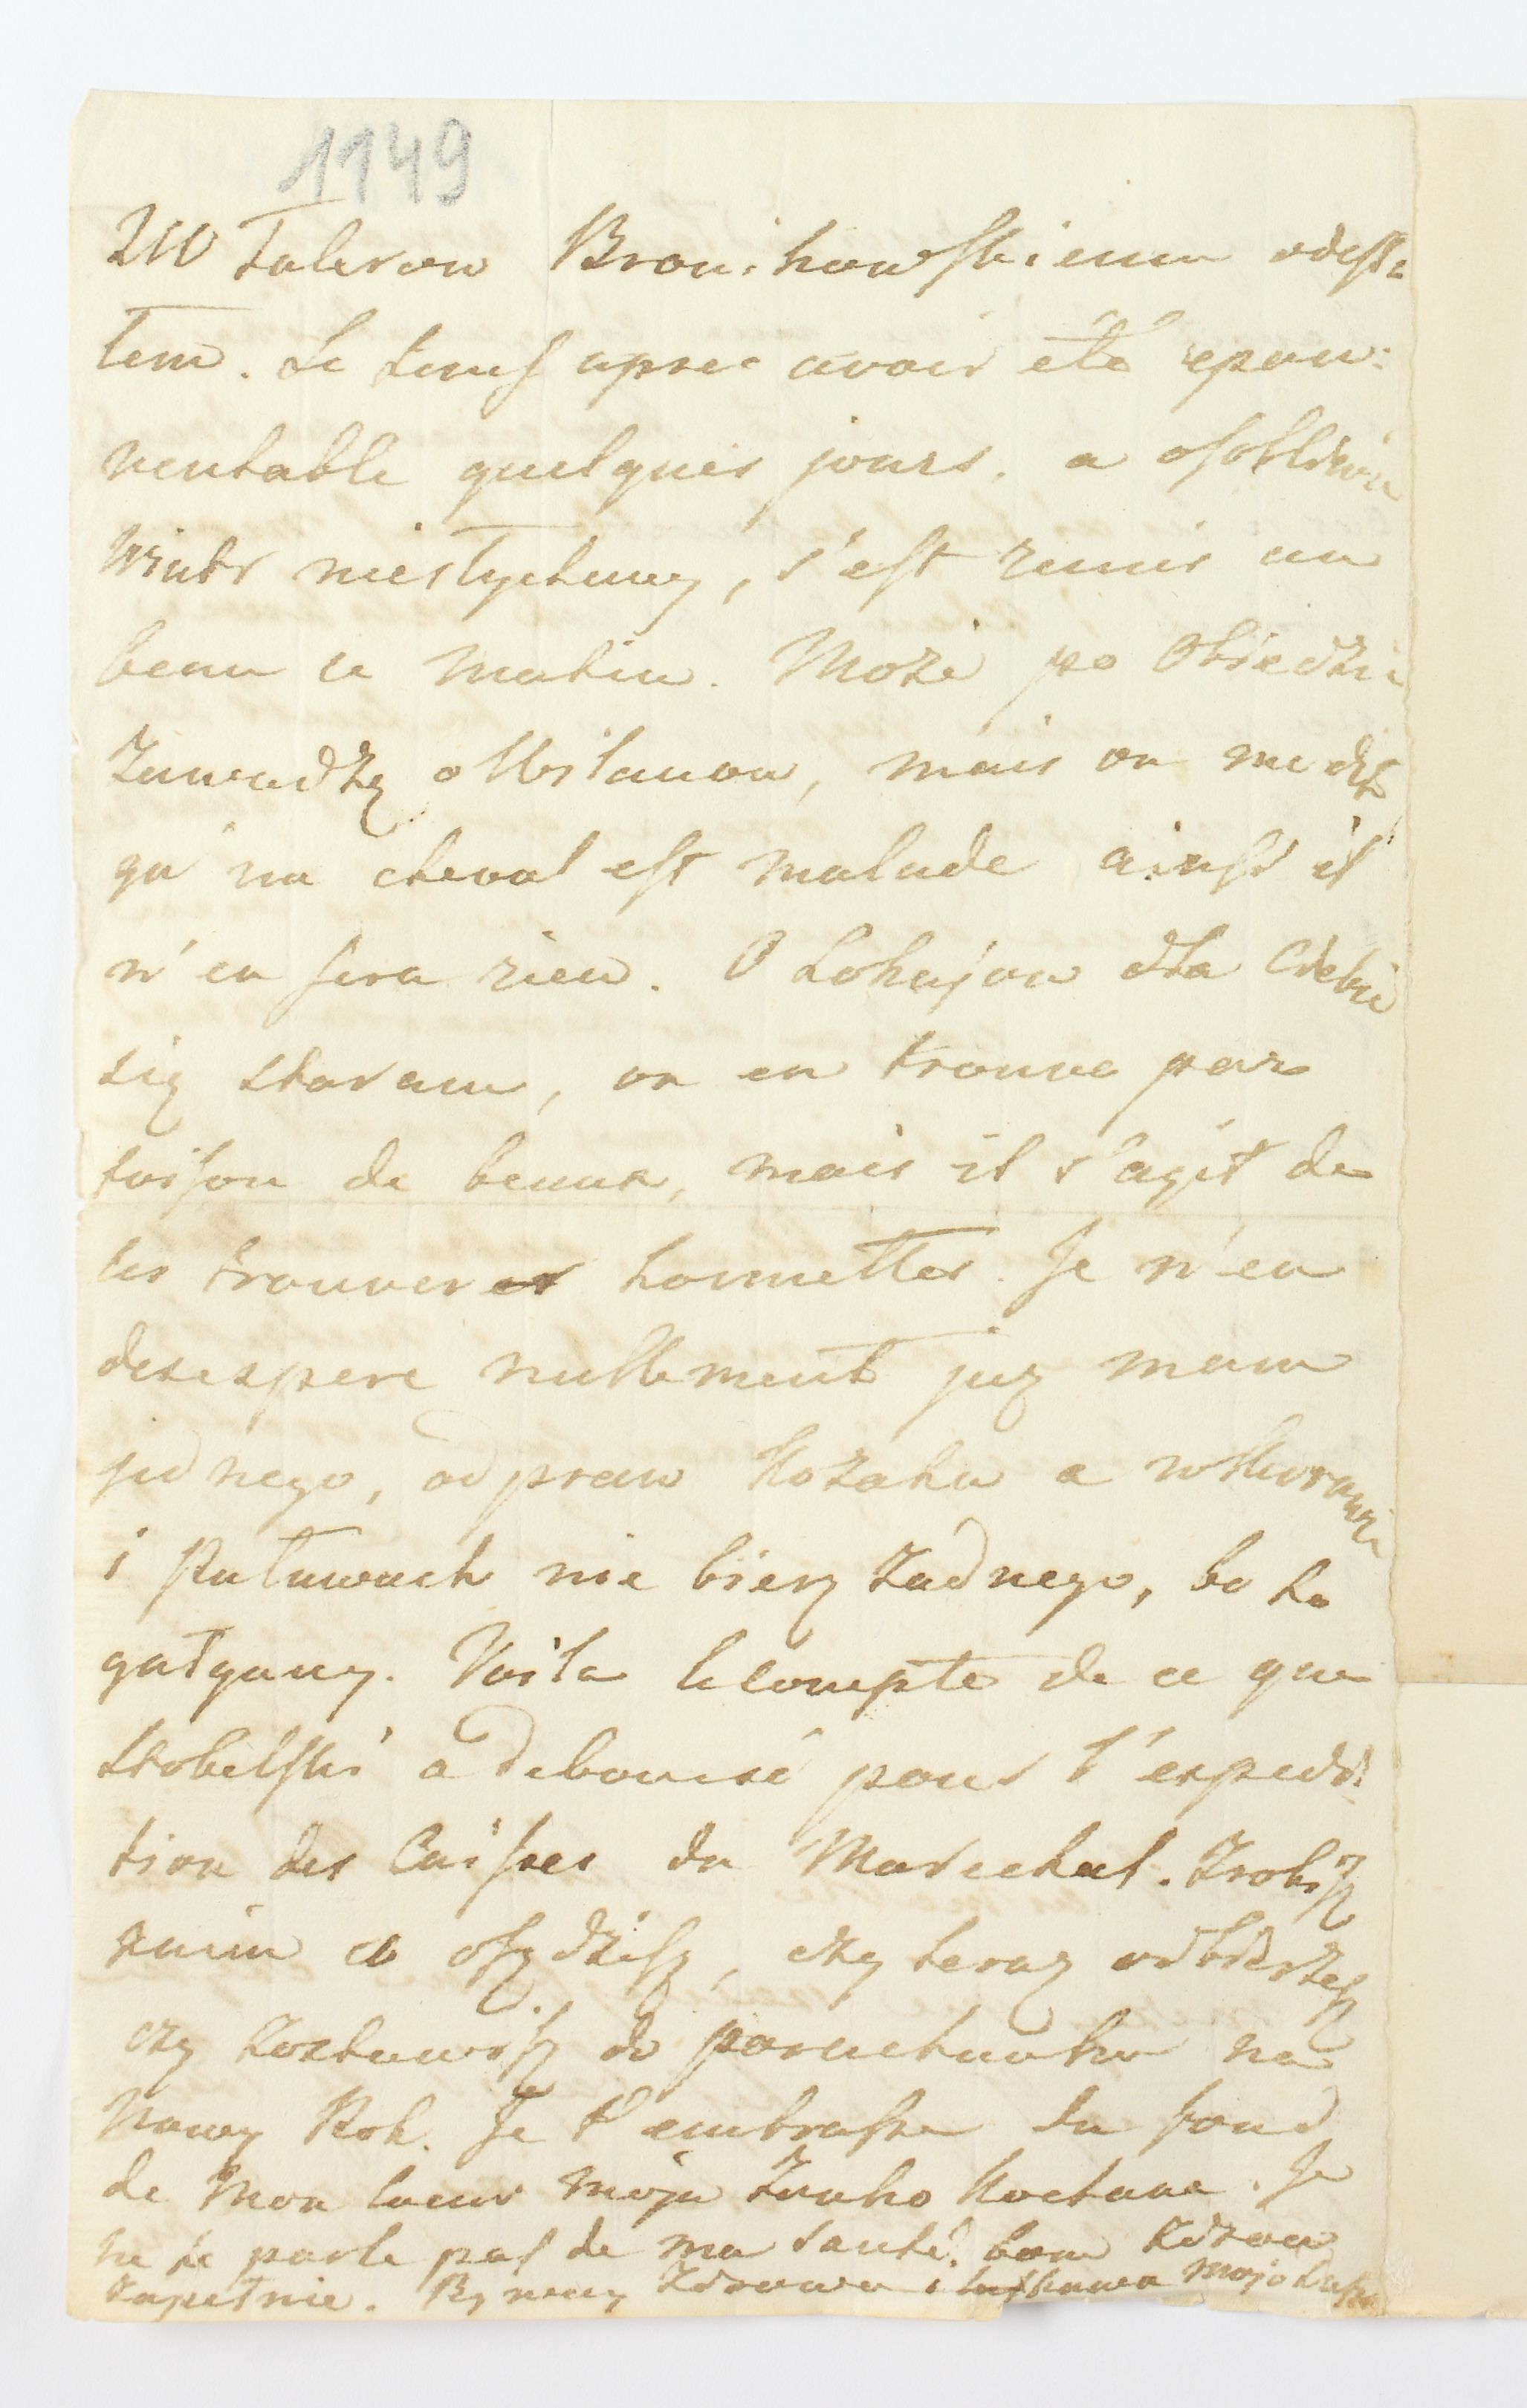 1149
200 Talerow Bronikowskiemu odesła
łem. Le tems apres avoir été epou:
ventable quelques jours, a osobliwie
wiatr niesłychany, s'est remis au
beau ce matin. Może po Obiedzie
zawadzę o Wilanow, mais on me dit
qu'un cheval est malade ainsi il
n'en sera rien. O Lokajow dla Ciebie
się staram, on en trouve par
foison de beaux, mais il s'agit de
les trouver honnettes. Je n'en
desespere nullement juz mam
jednego, odpraw Kozaka a w Kurowie
i Pulawach nie bierz zadnego, bo to
gałgany. Voila le compte de ce que
Skobelski a debousé pour l'expedi:
tion des Caisses du Marechal. Zrobisz
z niem co osądzisz, czy teraz odbierzesz
czy zostawisz do porachunku na
Nowy Rok. Je t'embrasse du fond
de Mon Coeur moja Zonko Kochana. Je
ne te parle pas de ma santé, bom zdrow
zupełnie. Bądź zdrowa i łaskawa moja Duszo